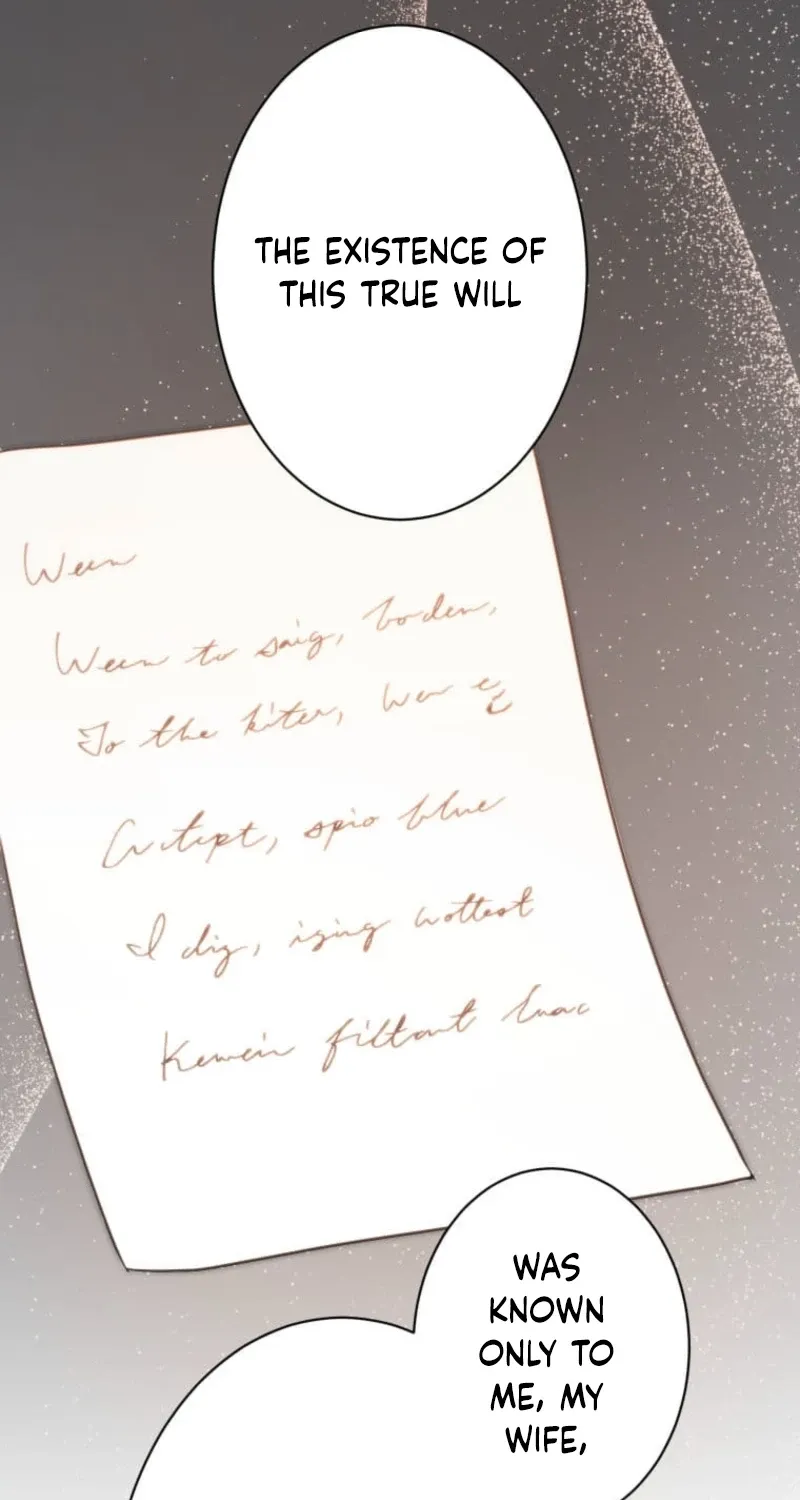 THE EXISTENCE OF
THIS TRUE WILL
Ween
Ween to saig, boden,
To the kiter,
spio blue
I dig, ising wottest
filtont
WAS
KNOWN
ONLY TO
ME, MY
WIFE,